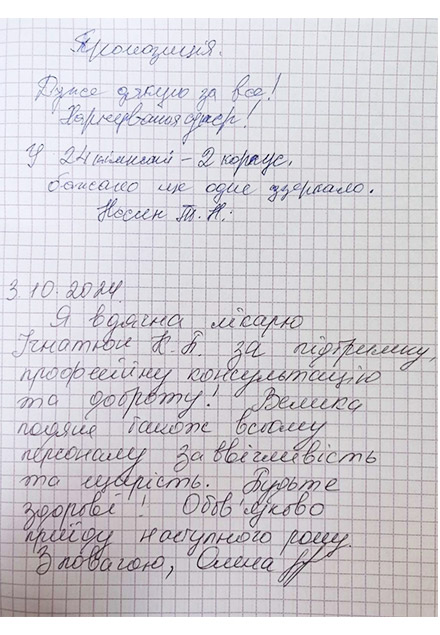 Пропозиція.
Дуже дякую за все!
Харчування супер!
У 24 кімнаті – 2 корпус,
бажано ще одне дзеркало.
Носик Т. Н.
3.10.2024.
Я вдячна лікарю
К. Б. за підтримку,
професійну консультацію
та доброту! Велика
подяка також всьому
персоналу за ввічливість
та щирість. Будьте
здорові! Обов'язково
прийду наступного року.
З повагою, Олена